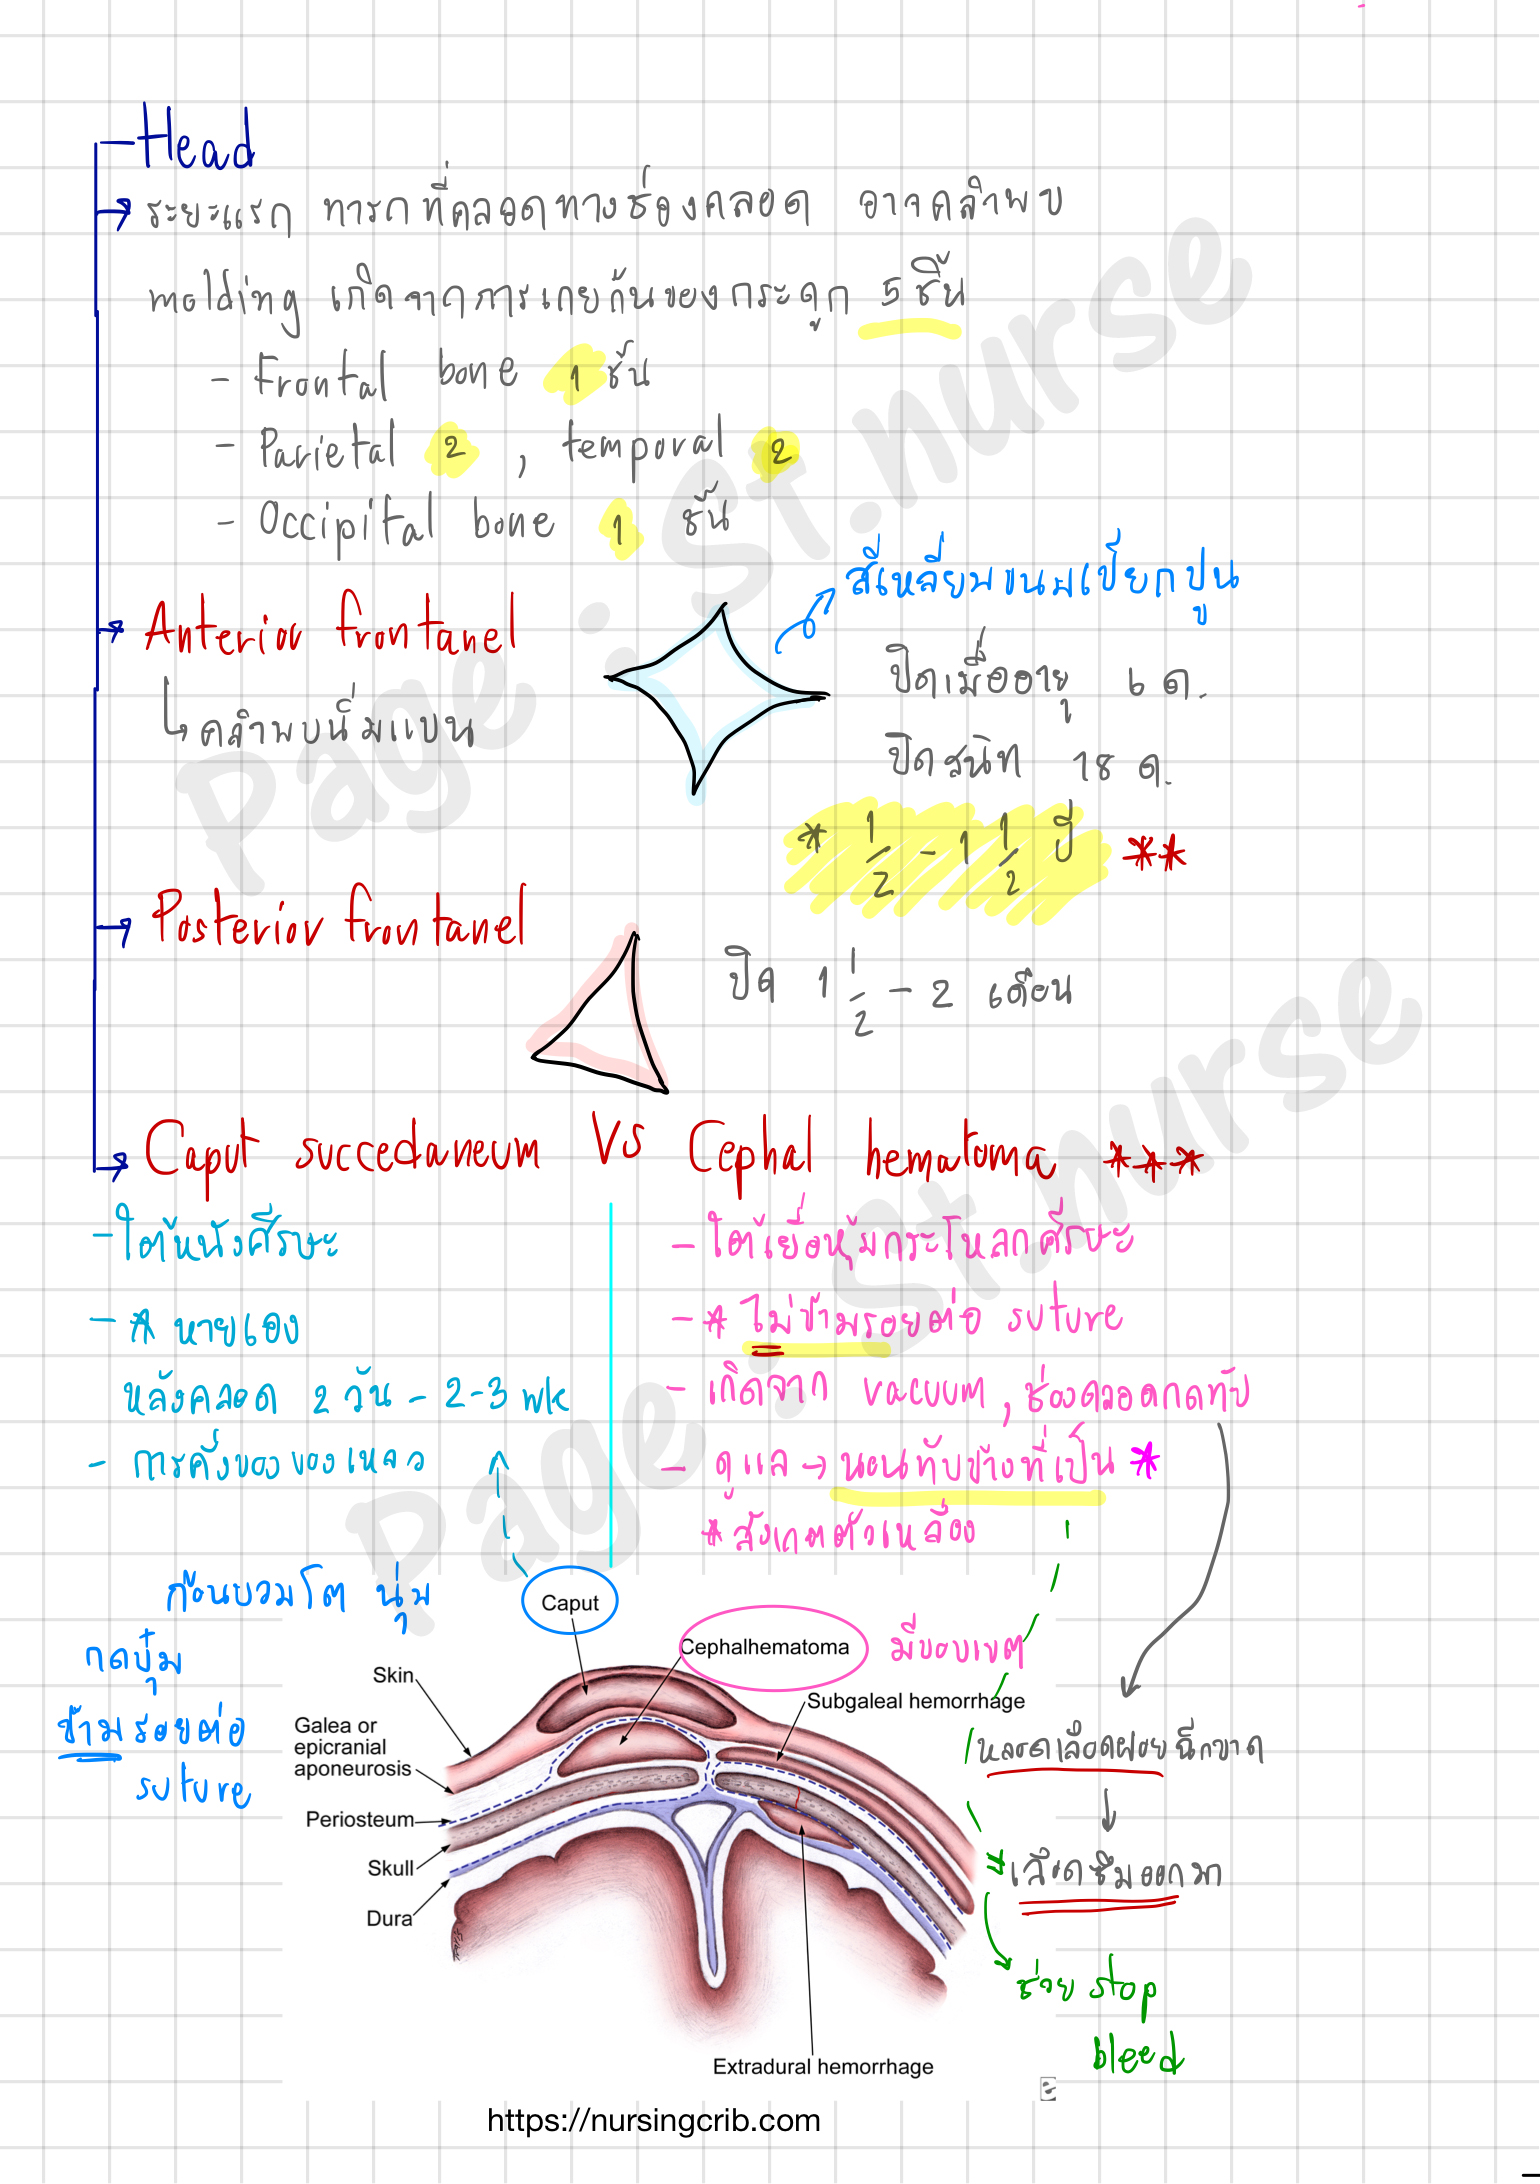 Head
ระยะแรก ทารกที่คลอดทางช่องคลอด อาจคลำพบ
molding เกิดจากการเกยกันของกระดูก 5 ชิ้น
- Frontal bone 1 ชิ้น
- Parietal 2 , temporal 2
- Occipital bone 1 ชิ้น
สี่เหลี่ยมขนมเปียกปูน
Anterior frontanel
คลำพบนิ่มแบน
ปิดเมื่ออายุ 6 ด.
ปิดสนิท 18 ด.
* 1/2 - 1 1/2 ปี **
Posterior frontanel
ปิด 1 1/2 - 2 เดือน
Caput succedaneum VS Cephal hematoma ***
- ใต้หนังศีรษะ
- * หายเอง
หลังคลอด 2 วัน - 2-3 wk
- การคั่งของของเหลว
- ใต้เยื่อหุ้มกระโหลกศีรษะ
- * ไม่ข้ามรอยต่อ suture
- เกิดจาก vacuum, ช่องคลอดกดทับ
- ดูแล → นอนทับข้างที่เป็น *
* สังเกตตัวเหลือง
ก้อนบวมโต นุ่ม
กดบุ๋ม
ข้ามรอยต่อ
suture
Caput
Cephalhematoma
มีขอบเขต
Skin
Subgaleal hemorrhage
Galea or
epicranial
aponeurosis
Periosteum
Skull
Dura
Extradural hemorrhage
หลอดเลือดฝอยฉีกขาด
เลือดซึมออกมา
ช่วย stop
bleed
https://nursingcrib.com
Page : St.nurse
Page : St.nurse